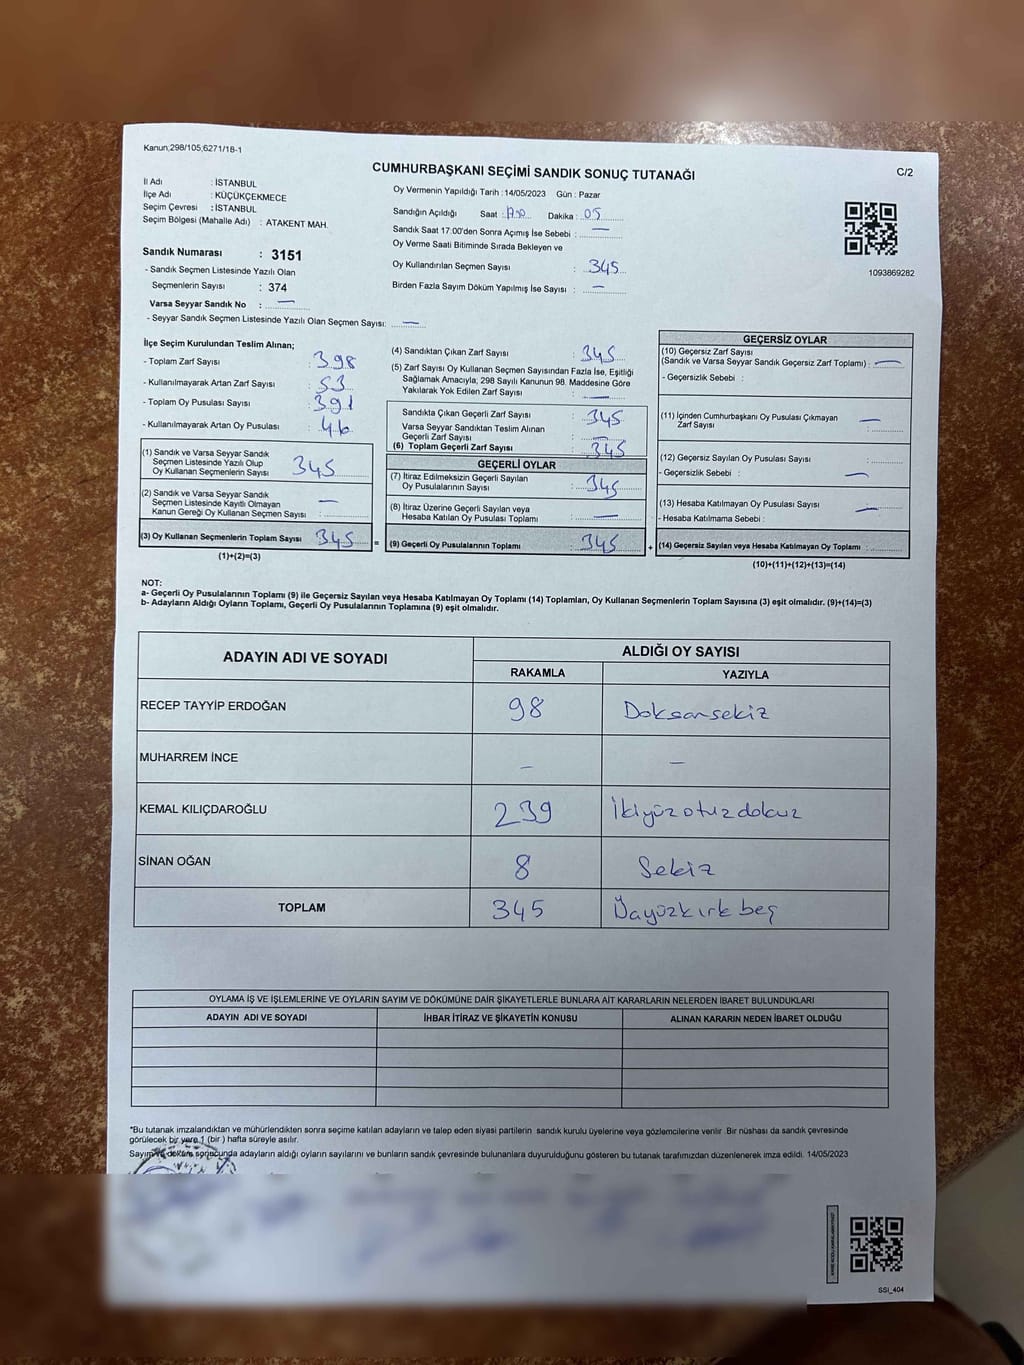 Kanun;298/105;6271/18-1
CUMHURBAŞKANI SEÇİMİ SANDIK SONUÇ TUTANAĞI
C/2
İl Adı : İSTANBUL
İlçe Adı : KÜÇÜKÇEKMECE
Seçim Çevresi : İSTANBUL
Seçim Bölgesi (Mahalle Adı) : ATAKENT MAH.
Oy Vermenin Yapıldığı Tarih : 14/05/2023 Gün : Pazar
Sandığın Açıldığı Saat : Dakika : 05
Sandık Saat 17.00'den Sonra Açımış İse Sebebi : —
Oy Verme Saati Bitiminde Sırada Bekleyen ve
Oy Kullandırılan Seçmen Sayısı : 345
Birden Fazla Sayım Döküm Yapılmış İse Sayısı : —
1093869282
Sandık Numarası : 3151
- Sandık Seçmen Listesinde Yazılı Olan
Seçmenlerin Sayısı : 374
Varsa Seyyar Sandık No : —
- Seyyar Sandık Seçmen Listesinde Yazılı Olan Seçmen Sayısı: —
İlçe Seçim Kurulundan Teslim Alınan;
- Toplam Zarf Sayısı : 398
- Kullanılmayarak Artan Zarf Sayısı : 53
- Toplam Oy Pusulası Sayısı : 391
- Kullanılmayarak Artan Oy Pusulası : 46
(1) Sandık ve Varsa Seyyar Sandık
Seçmen Listesinde Yazılı Olup
Oy Kullanan Seçmenlerin Sayısı : 345
(2) Sandık ve Varsa Seyyar Sandık
Seçmen Listesinde Kayıtlı Olmayan
Kanun Gereği Oy Kullanan Seçmen Sayısı : —
(3) Oy Kullanan Seçmenlerin Toplam Sayısı : 345
(1)+(2)=(3)
=
(4) Sandıktan Çıkan Zarf Sayısı : 345
(5) Zarf Sayısı Oy Kullanan Seçmen Sayısından Fazla İse, Eşitliği
Sağlamak Amacıyla; 298 Sayılı Kanunun 98. Maddesine Göre
Yakılarak Yok Edilen Zarf Sayısı : —
Sandıkta Çıkan Geçerli Zarf Sayısı : 345
Varsa Seyyar Sandıktan Teslim Alınan
Geçerli Zarf Sayısı : —
(6) Toplam Geçerli Zarf Sayısı : 345
GEÇERLİ OYLAR
(7) İtiraz Edilmeksizin Geçerli Sayılan
Oy Pusulalarının Sayısı : 345
(8) İtiraz Üzerine Geçerli Sayılan veya
Hesaba Katılan Oy Pusulası Toplamı : —
(9) Geçerli Oy Pusulalarının Toplamı : 345
+
GEÇERSİZ OYLAR
(10) Geçersiz Zarf Sayısı
(Sandık ve Varsa Seyyar Sandık Geçersiz Zarf Toplamı) : —
- Geçersizlik Sebebi :
(11) İçinden Cumhurbaşkanı Oy Pusulası Çıkmayan
Zarf Sayısı : —
(12) Geçersiz Sayılan Oy Pusulası Sayısı :
- Geçersizlik Sebebi : —
(13) Hesaba Katılmayan Oy Pusulası Sayısı : —
- Hesaba Katılmama Sebebi :
(14) Geçersiz Sayılan veya Hesaba Katılmayan Oy Toplamı :
(10)+(11)+(12)+(13)=(14)
NOT:
a- Geçerli Oy Pusulalarının Toplamı (9) ile Geçersiz Sayılan veya Hesaba Katılmayan Oy Toplamı (14) Toplamları, Oy Kullanan Seçmenlerin Toplam Sayısına (3) eşit olmalıdır. (9)+(14)=(3)
b- Adayların Aldığı Oyların Toplamı, Geçerli Oy Pusulalarının Toplamına (9) eşit olmalıdır.
ADAYIN ADI VE SOYADI ALDIĞI OY SAYISI
RAKAMLA YAZIYLA
RECEP TAYYİP ERDOĞAN 98 Doksansekiz
MUHARREM İNCE – –
KEMAL KILIÇDAROĞLU 239 İkiyüzotuzdokuz
SİNAN OĞAN 8 Sekiz
TOPLAM 345 Üçyüzkırkbeş
OYLAMA İŞ VE İŞLEMLERİNE VE OYLARIN SAYIM VE DÖKÜMÜNE DAİR ŞİKAYETLERLE BUNLARA AİT KARARLARIN NELERDEN İBARET BULUNDUKLARI
ADAYIN ADI VE SOYADI İHBAR İTİRAZ VE ŞİKAYETİN KONUSU ALINAN KARARIN NEDEN İBARET OLDUĞU
*Bu tutanak imzalandıktan ve mühürlendikten sonra seçime katılan adayların ve talep eden siyasi partilerin sandık kurulu üyelerine veya gözlemcilerine verilir. Bir nüshası da sandık çevresinde
görülecek bir yere 1 (bir ) hafta süreyle asılır.
Sayım ve döküm sonucunda adayların aldığı oyların sayılarını ve bunların sandık çevresinde bulunanlara duyurulduğunu gösteren bu tutanak tarafımızdan düzenlenerek imza edildi. 14/05/2023
SSI_404